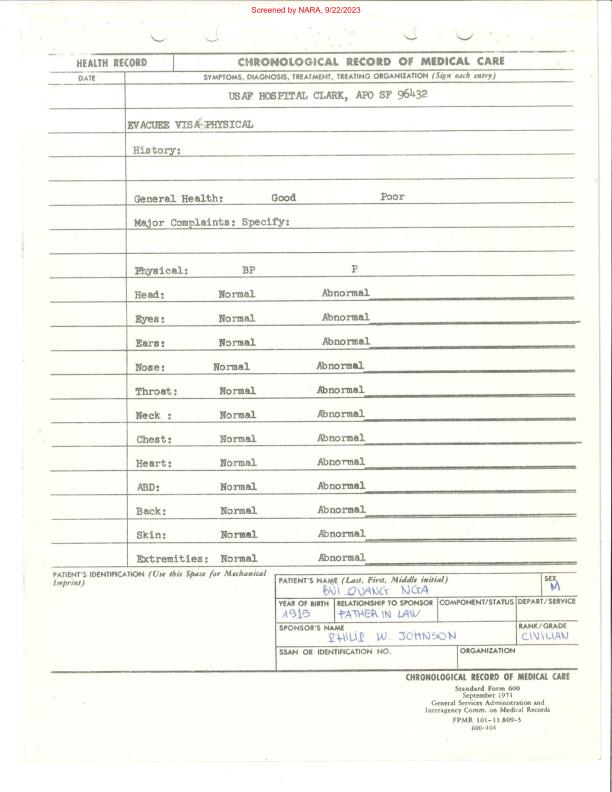 Screened by NARA, 9/22/2023
HEALTH RECORD CHRONOLOGICAL RECORD OF MEDICAL CARE
DATE SYMPTOMS, DIAGNOSIS, TREATMENT, TREATING ORGANIZATION (Sign each entry)
USAF HOSPITAL CLARK, APO SF 96432
EVACUEE VISA PHYSICAL
History:
General Health: Good Poor
Major Complaints: Specify:
Physical: BP P
Head: Normal Abnormal
Eyes: Normal Abnormal
Ears: Normal Abnormal
Nose: Normal Abnormal
Throat: Normal Abnormal
Neck : Normal Abnormal
Chest: Normal Abnormal
Heart: Normal Abnormal
ABD: Normal Abnormal
Back: Normal Abnormal
Skin: Normal Abnormal
Extremities: Normal Abnormal
PATIENT'S IDENTIFICATION (Use this Space for Mechanical
Imprint)
PATIENT'S NAME (Last, First, Middle initial) SEX
BUI QUANG NGA M
YEAR OF BIRTH RELATIONSHIP TO SPONSOR COMPONENT/STATUS DEPART/SERVICE
1915 FATHER IN LAW
SPONSOR'S NAME RANK/GRADE
PHILIP W. JOHNSON CIVILIAN
SSAN OR IDENTIFICATION NO. ORGANIZATION
CHRONOLOGICAL RECORD OF MEDICAL CARE
Standard Form 600
September 1971
General Services Administration and
Interagency Comm. on Medical Records
FPMR 101-11.809-3
600-104